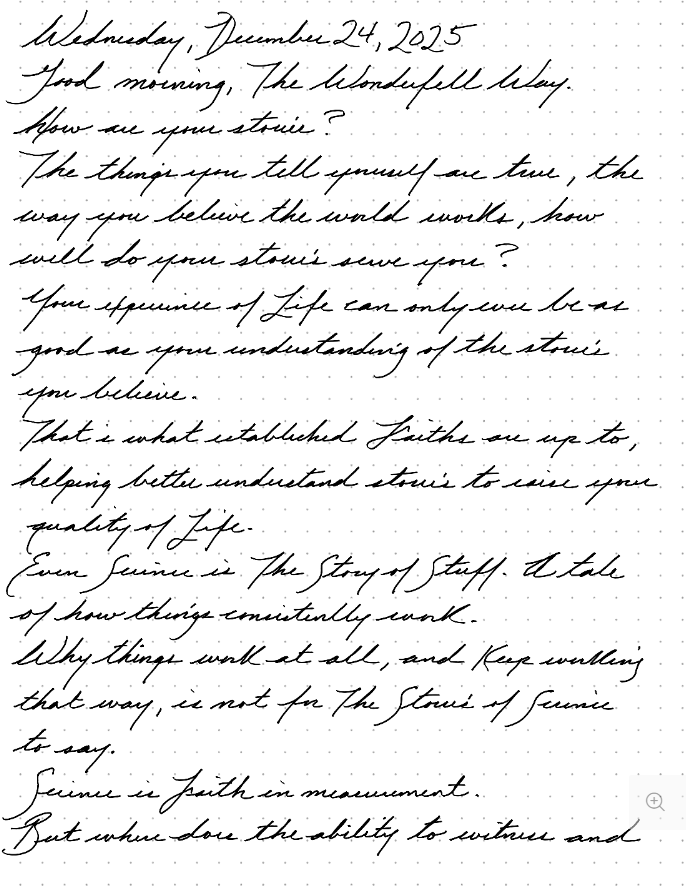 Wednesday, December 24, 2025
Good morning, The Wonderfell Way.
How are your stories?
The things you tell yourself are true, the
way you believe the world works, how
well do your stories serve you?
Your experience of Life can only ever be as
good as your understanding of the stories
you believe.
That is what established Faiths are up to,
helping better understand stories to raise your
quality of Life.
Even Science is The Story of Stuff. A tale
of how things consistently work.
Why things work at all, and Keep working
that way, is not for The Stories of Science
to say.
Science is Faith in measurement.
But where does the ability to witness and